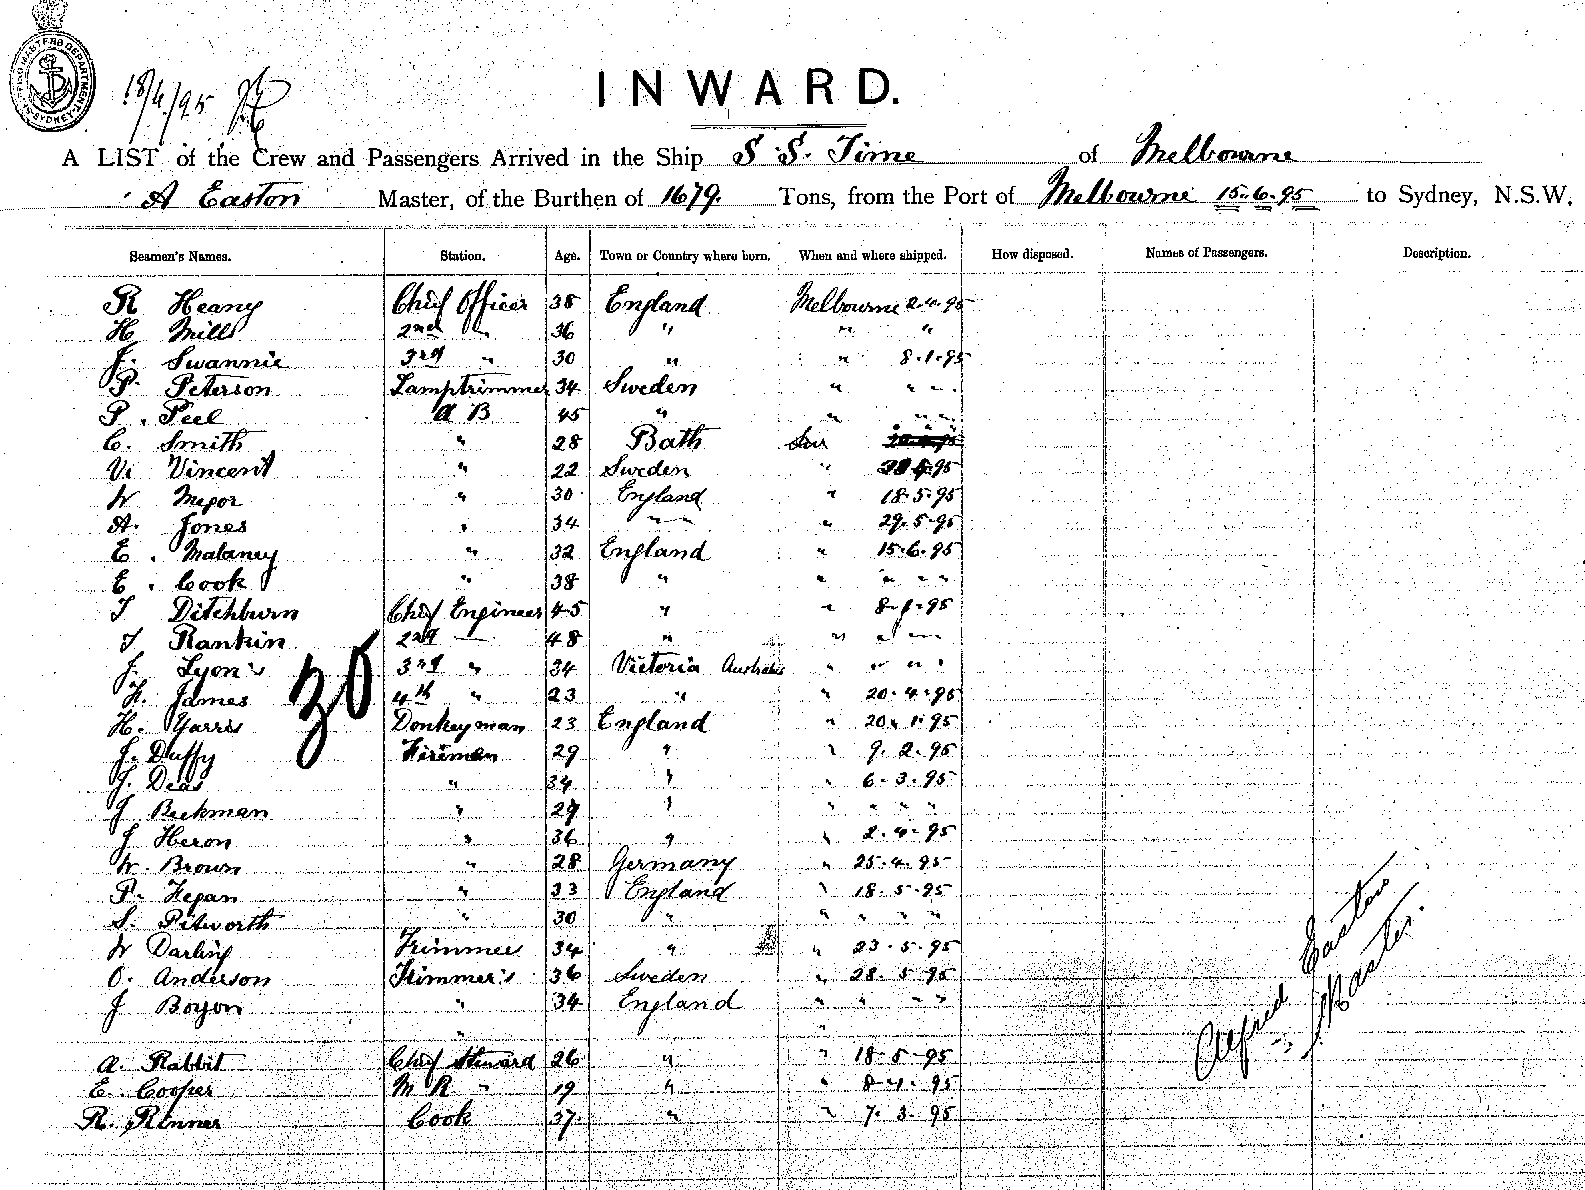 SHIPPING MASTERS DEPARTMENT SYDNEY
INWARD.
A LIST of the Crew and Passengers Arrived in the Ship S. S. Time of Melbourne
A Easton Master, of the Burthen of 1679. Tons, from the Port of Melbourne 15.6.95 to Sydney, N.S.W.,
Seamen's Names. Station. Age. Town or Country where born. When and where shipped. How disposed. Names of Passengers. Description.
R Heany Chief Officer 38 England Melbourne 2.4.95
H Mills 2nd " 36 " " "
J. Swannie 3rd " 30 " " 8.1.95
P. Peterson Lamptrimmer 34 Sweden " " "
P. Peel A B 45 " " " "
C. Smith " 28 Bath
Vi Vincent " 22 Sweden " 95
W " 30 England " 18.5.95
A. Jones " 34 " " 29.5.95
E. Malaney " 32 England " 15.6.95
E. Cook " 38 " " " " "
T Ditchburn Chief Engineer 45 " " 8.1.95
T Rankin 2nd 48 " " " "
J. Lyon's 3rd " 34 Victoria Australia " " " "
H. James 4th " 23 " " 20.4.95
H. Yarris Donkeyman 23 England " 20.1.95
J. Duffy Fireman 29 " " 9.2.95
J. Deas " 34 " " 6.3.95
J Beekman " 29 " " " " "
J Heron " 36 " " 2.4.95
W. Brown " 28 Germany " 25.4.95
P. Hegan " 33 England " 18.5.95
S. Pitworth " 30 " " " " "
W Darling Trimmer 34 " " 23.5.95
O. Anderson Trimmer's 36 Sweden " 28.5.95
J Boyon " 34 England " " " "
" "
A. Rabbit Chief Steward 26 " " 18.5.95
E. Cooper M R " 19 " " 95
R. Rinner Cook 37. " " 7.3.95
30
Alfred Easton
Master.